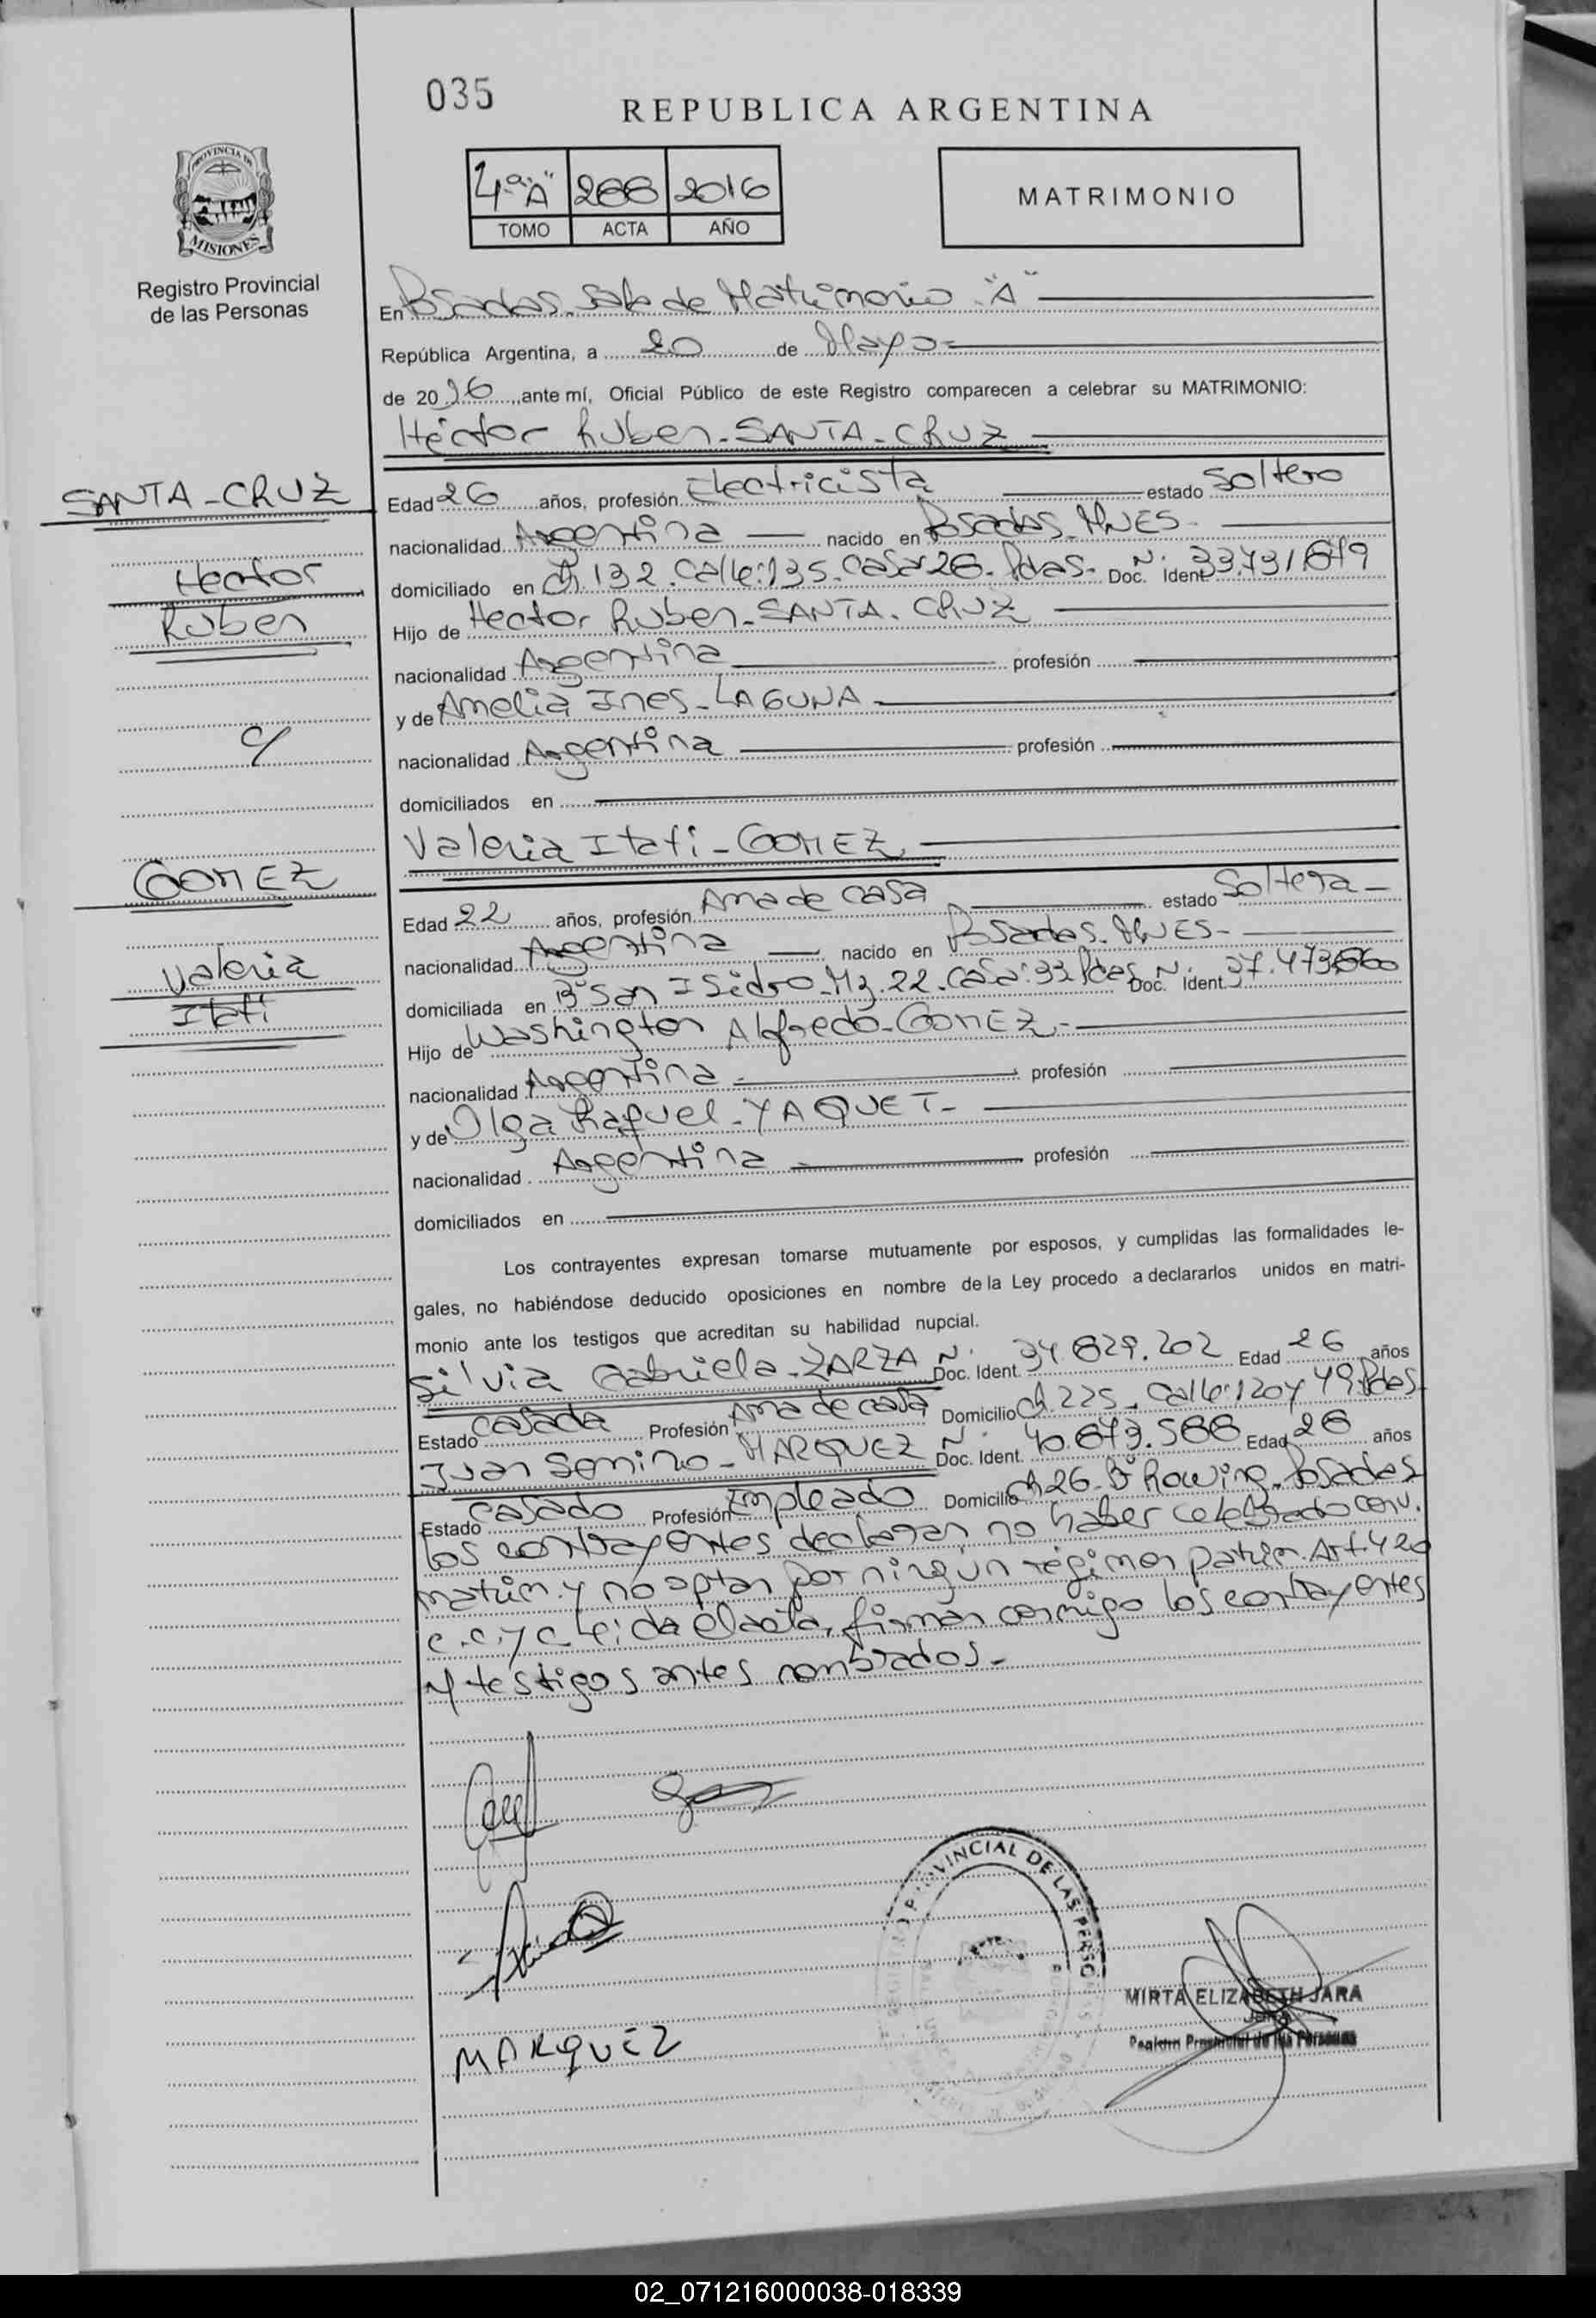 035
REPUBLICA ARGENTINA
PROVINCIA DE
MISIONES
Registro Provincial
de las Personas
4º "A" 2016
TOMO ACTA AÑO
MATRIMONIO
En Posadas. Sala de Matrimonio "A"
República Argentina, a 20 de Mayo
de 2016, ante mí, Oficial Público de este Registro comparecen a celebrar su MATRIMONIO:
Héctor Ruben - SANTA - CRUZ
SANTA - CRUZ
Hector
Ruben
c/
GOMEZ
Valeria
Itati
Edad 26 años, profesión Electricista estado Soltero
nacionalidad Argentina nacido en Posadas. Mnes-
domiciliado en Ch. 132. Calle: 135. Casa 26. Pdas- Doc. Ident. Nº 33.731.
Hijo de Hector Ruben - SANTA. CRUZ
nacionalidad Argentina profesión
y de Amelia Ines - LAGUNA
nacionalidad Argentina profesión
domiciliados en
Valeria Itati - GOMEZ
Edad 22 años, profesión Ama de casa estado Soltera -
nacionalidad Argentina nacido en Posadas. Mnes-
domiciliada en Bº San Isidro. Mz. 22. Casa: 33 Pdas Doc. Ident. Nº 37.473.
Hijo de Washington Alfredo - GOMEZ -
nacionalidad Argentina profesión
y de Olga Raquel - YAQUET -
nacionalidad Argentina profesión
domiciliados en
Los contrayentes expresan tomarse mutuamente por esposos, y cumplidas las formalidades le-
gales, no habiéndose deducido oposiciones en nombre de la Ley procedo a declararlos unidos en matri-
monio ante los testigos que acreditan su habilidad nupcial.
Silvia Gabriela - ZARZA Doc. Ident. Nº 34.829.202 Edad 26 años
Estado Casada Profesión Ama de casa Domicilio Ch. 225. Calle: 120 y 49. Pdas
Juan - MARQUEZ Doc. Ident. Nº Edad 26 años
Estado Casado Profesión Empleado Domicilio Ch 26. Bº Rowing. Posadas
los contrayentes declaran no haber celebrado conv.
matrim. y no optan por ningun régimen patrim. Art. 420
c.c. y c. Leida el acta, firman conmigo los contrayentes
y testigos antes nombrados.-
MARQUEZ
PROVINCIAL DE LAS PERSONAS
MIRTA ELIZABETH JARA
Registro Provincial de las Personas
02_071216000038-018339